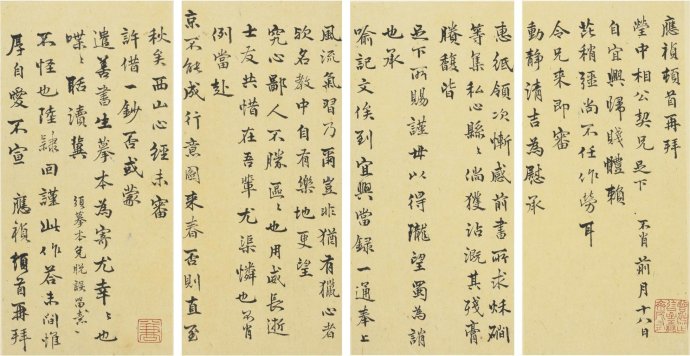 應禎頓首再拜
瑩中相公契兄足下 不肖前月十八日
自宜興歸賤體賴
芘稍彊尚不任作勞耳
令兄來即審
動静清吉為慰承
惠紙領次慚感前書所求秌磵
等集私心縣〻倘獲沾溉其殘膏
賸馥皆
足下所賜謹毋以得隴望蜀為誚
也承
喻記文俟到宜興當録一通奉上
風流氣習乃爾豈非猶有獵心者
欤名教中自有樂地更望
究心鄙人不勝區〻也用威長逝
士友共惜在吾輩尤憐也不肖
例當赴
京不能成行意圖來春否則直至
秋矣西山心經未審
許借一鈔否或蒙
遣善書生摹本為寄尤幸〻也
喋〻聒瀆冀 須摹本免脱誤留意〻
不怪也陸隸回謹此作答未間惟
厚自愛不宣 應禎頓首再拜